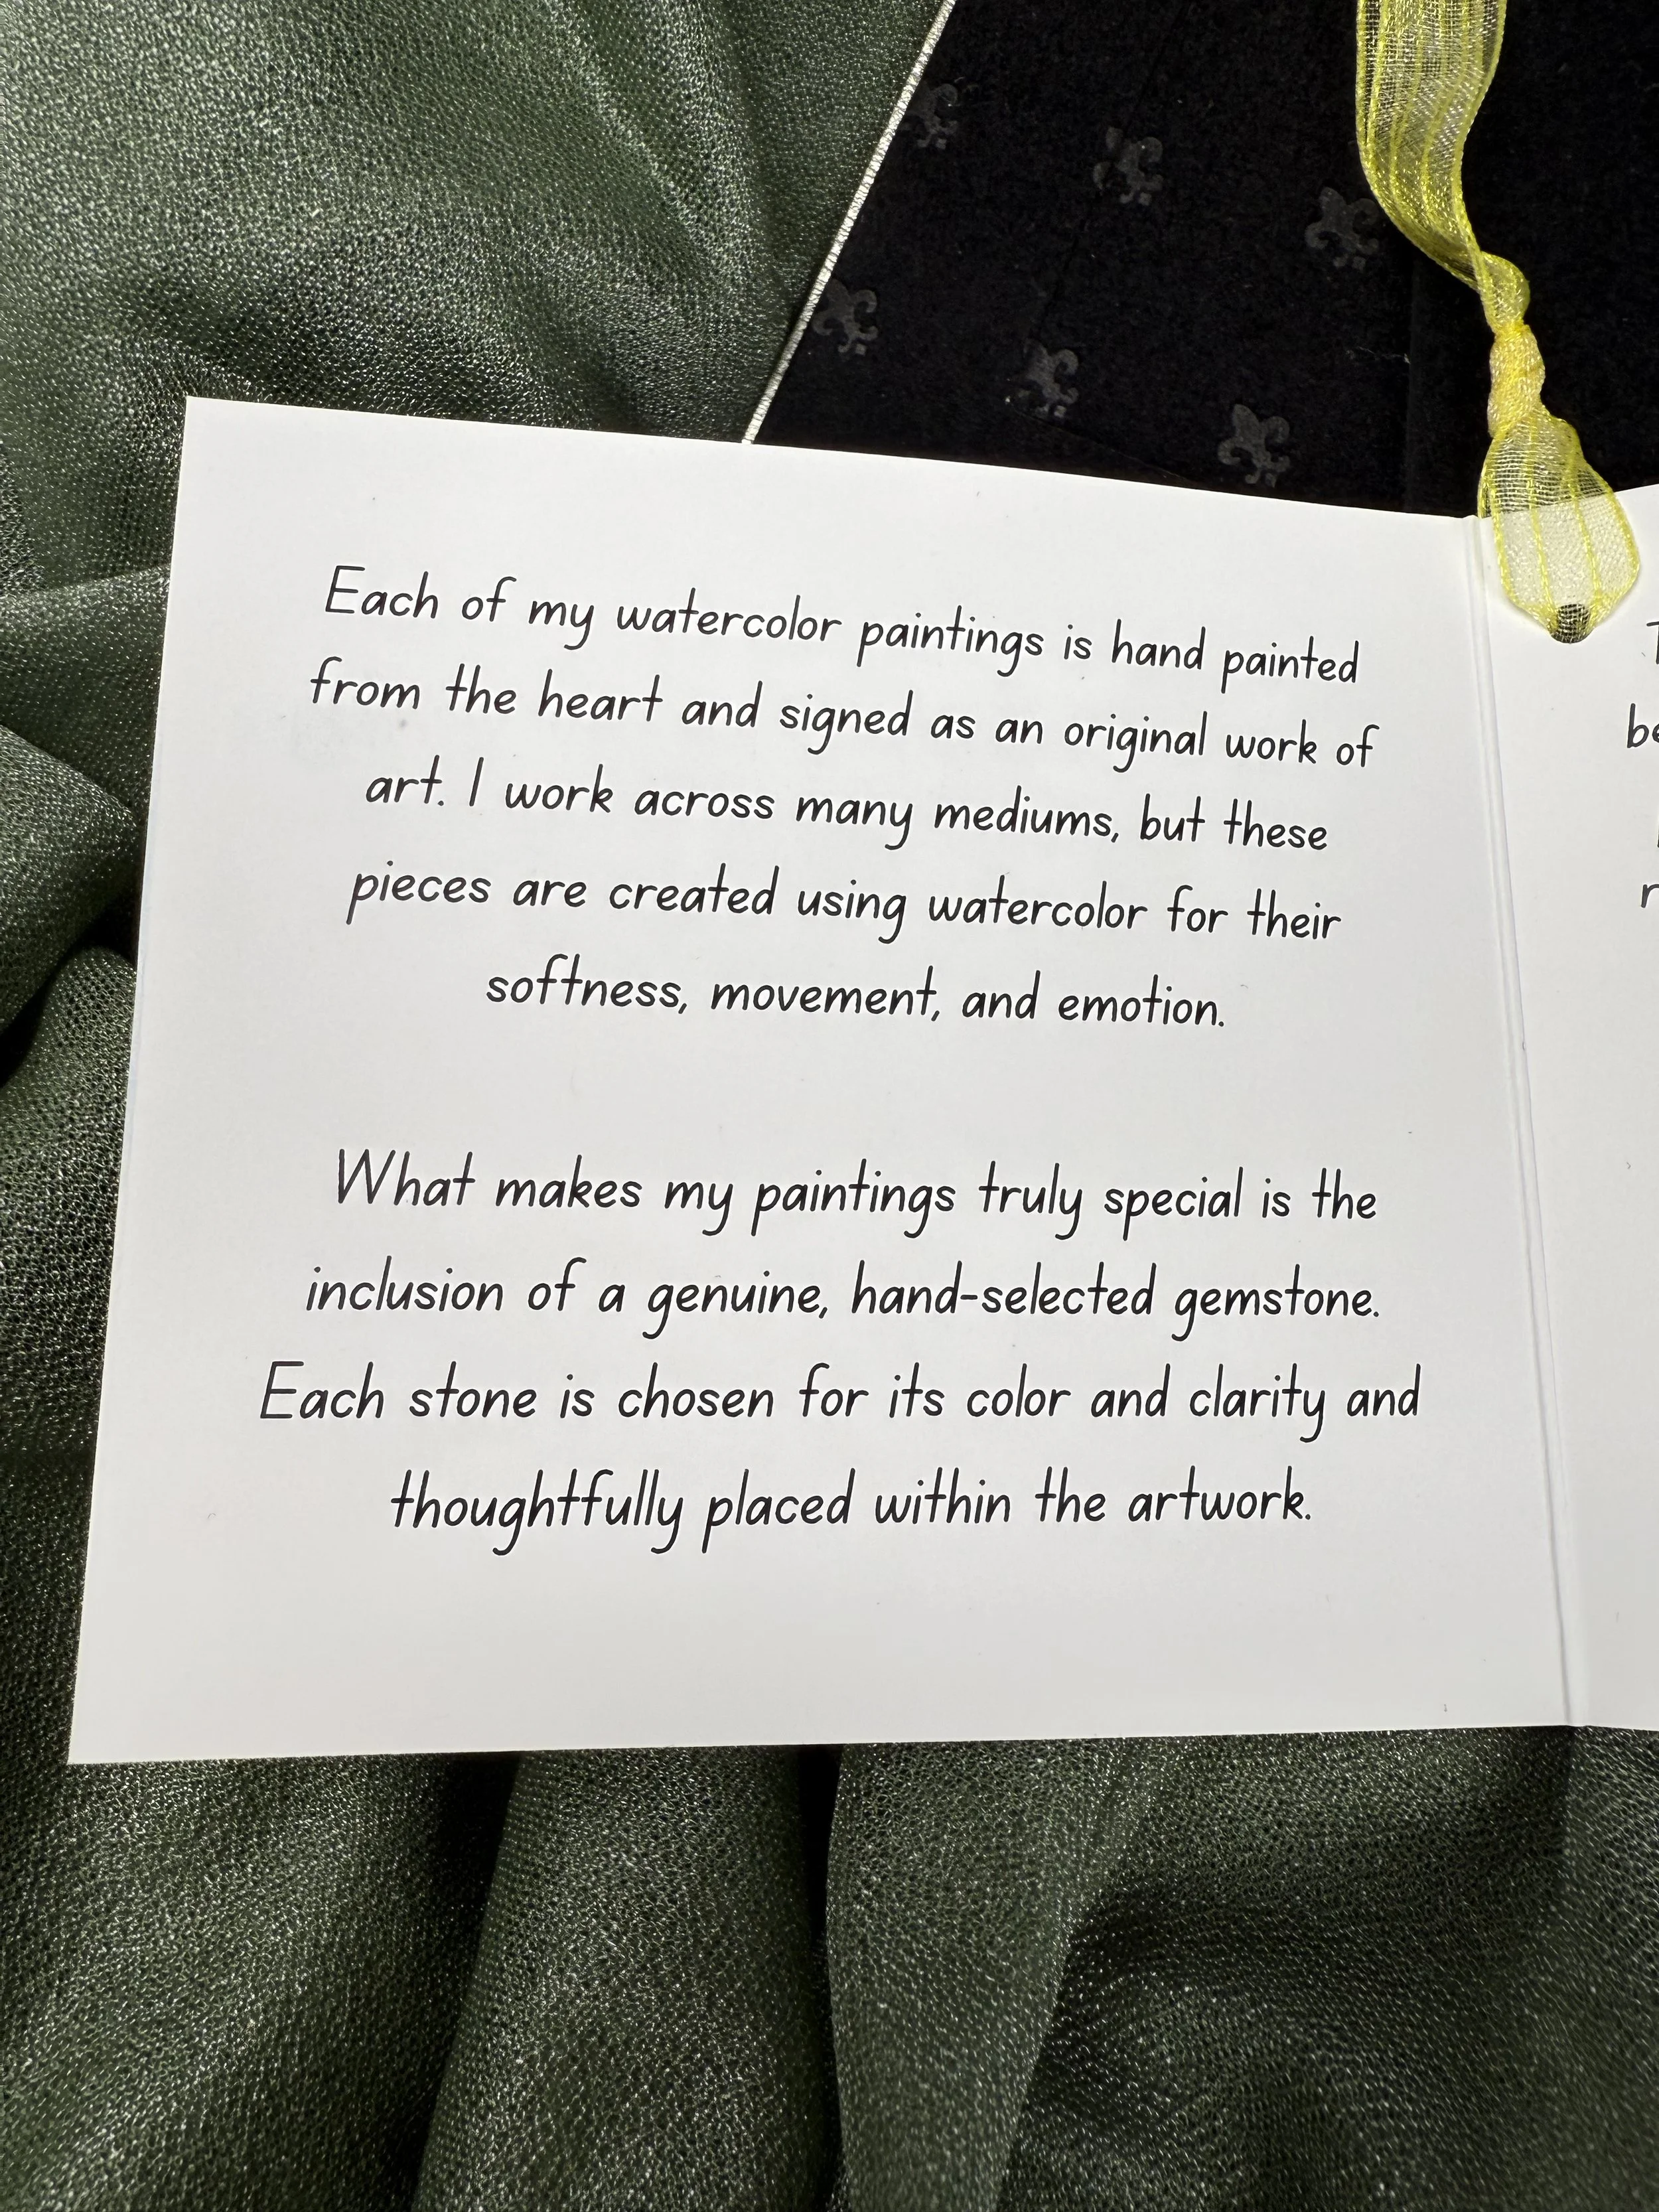 Each of my watercolor paintings is hand painted
from the heart and signed as an original work of
art. I work across many mediums, but these
pieces are created using watercolor for their
softness, movement, and emotion.
What makes my paintings truly special is the
inclusion of a genuine, hand-selected gemstone.
Each stone is chosen for its color and clarity and
thoughtfully placed within the artwork.